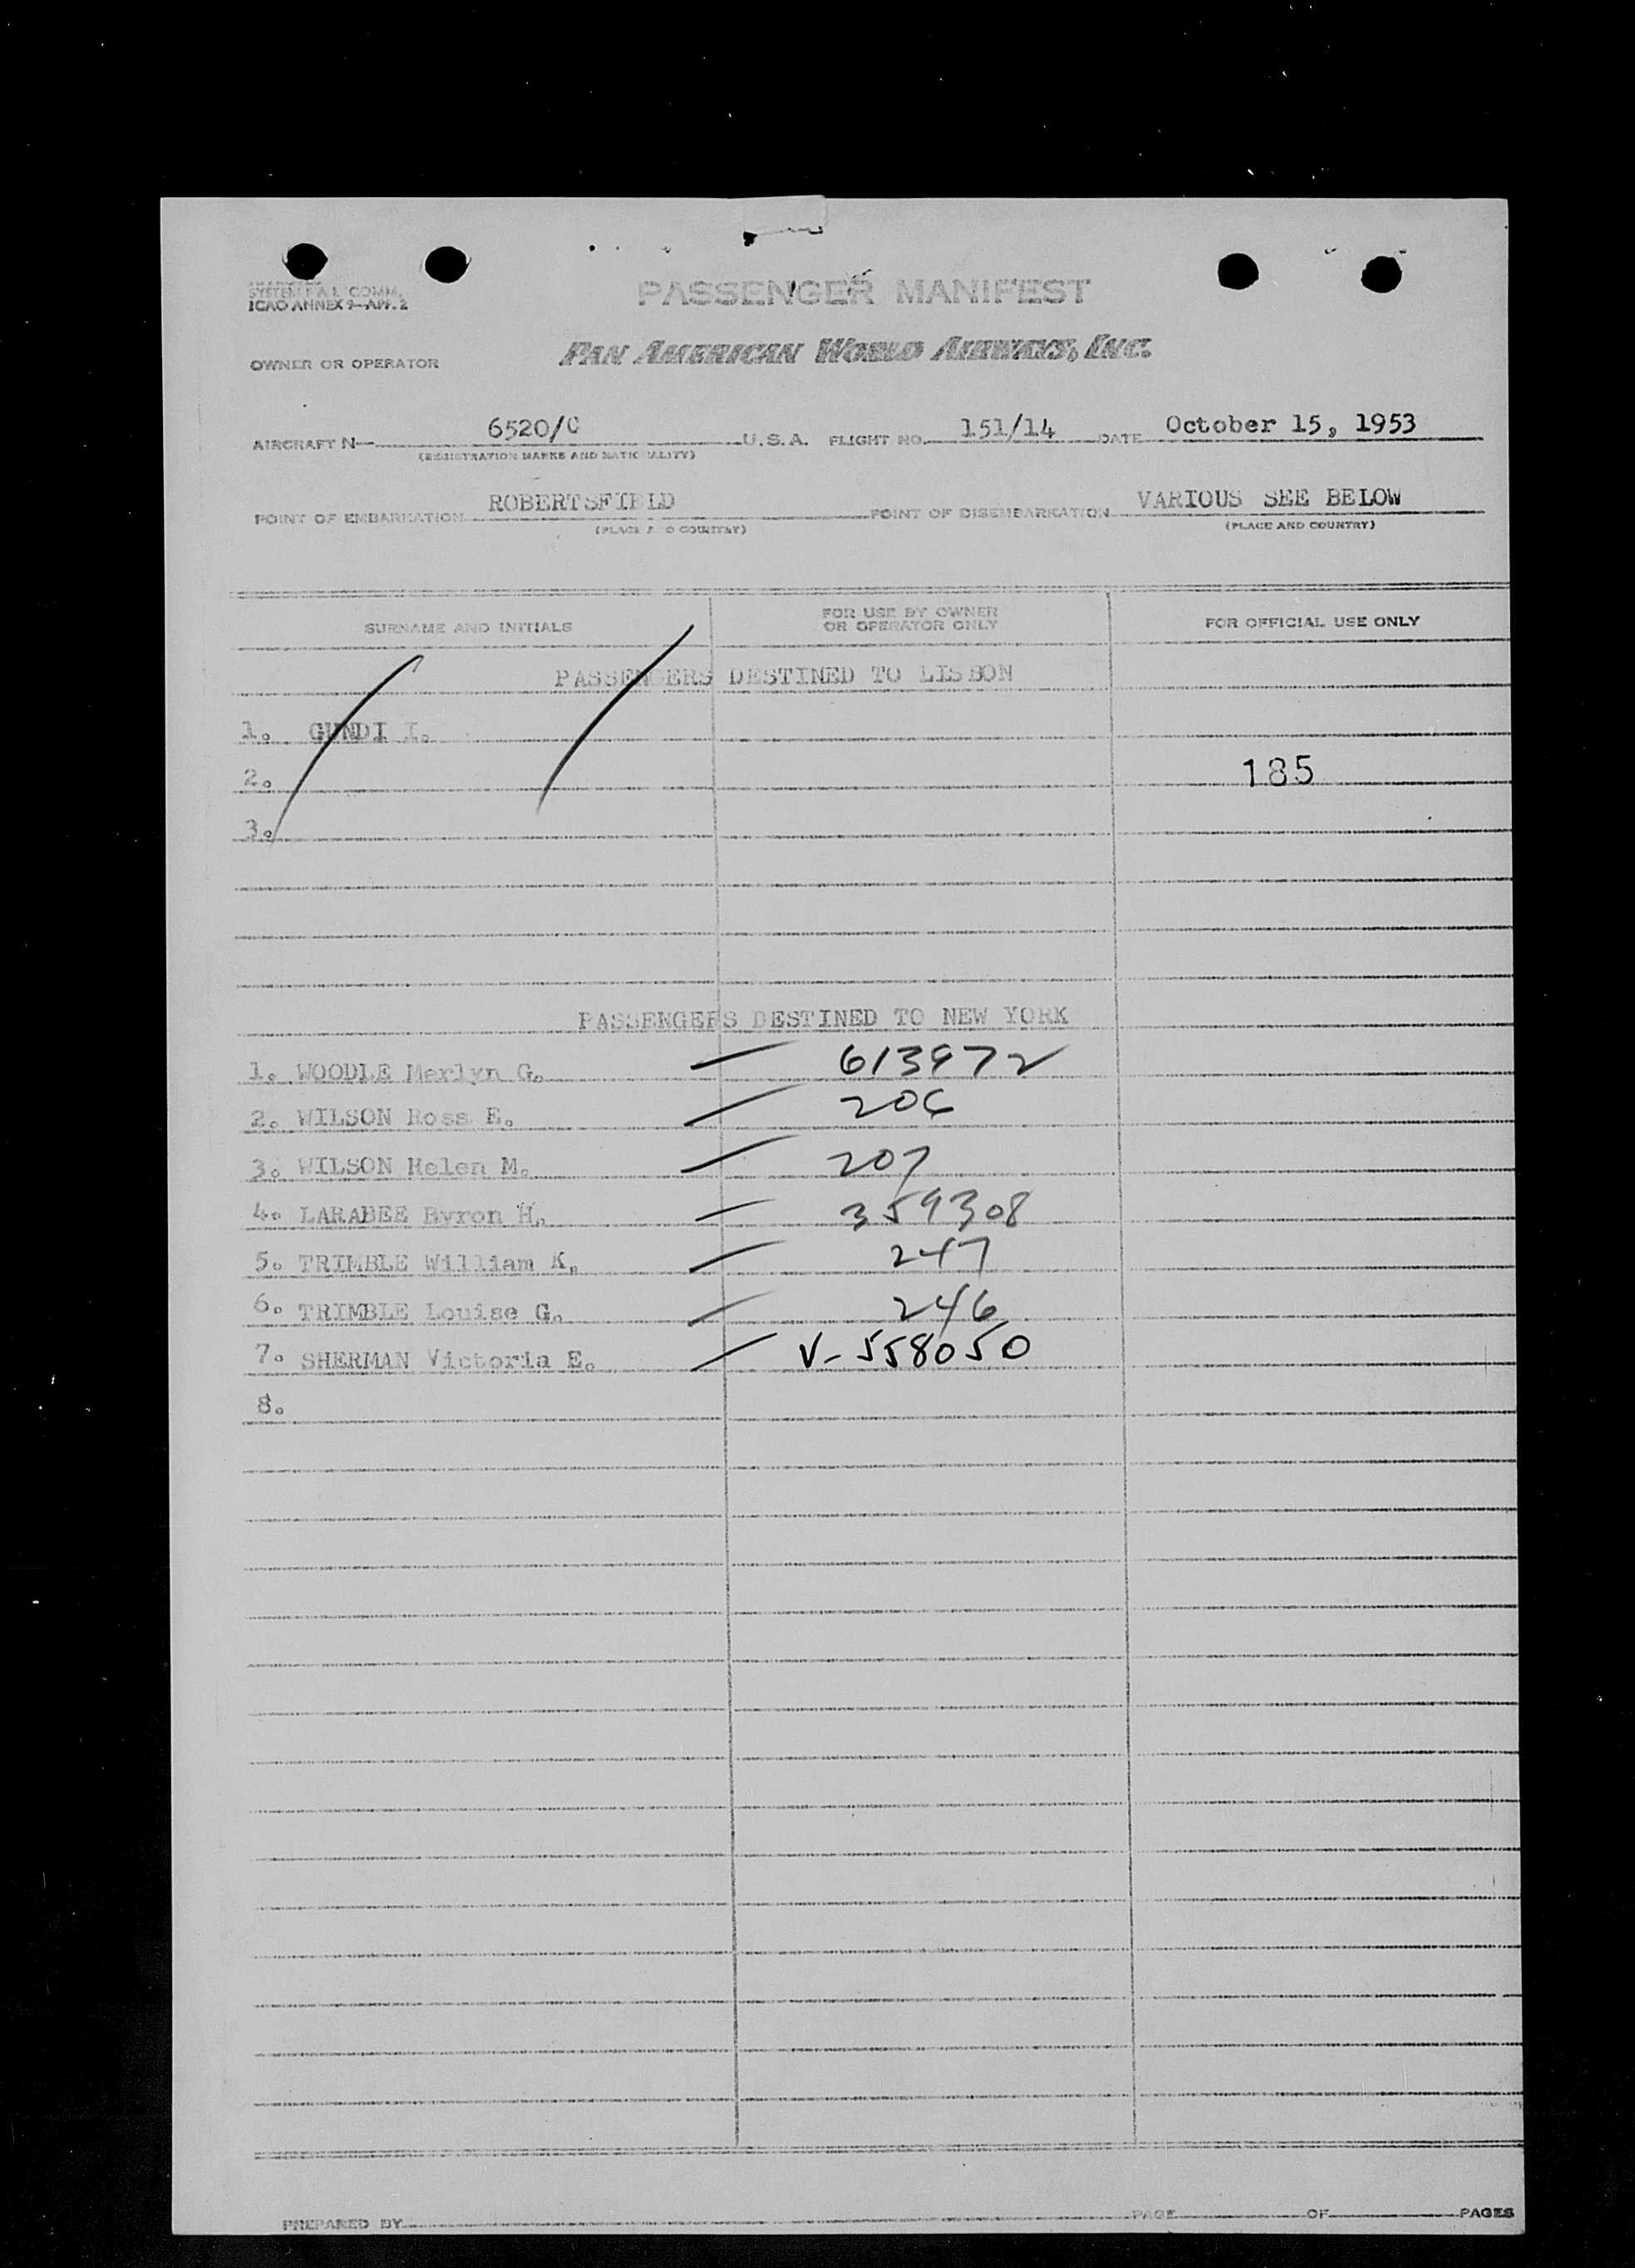 SYSTEM F.A.L. COMM.
ICAO ANNEX 9—APP. 2
PASSENGER MANIFEST
OWNER OR OPERATOR PAN AMERICAN WORLD AIRWAYS, INC.
AIRCRAFT N— 6520/C U.S.A. FLIGHT NO. 151/14 DATE October 15, 1953
(REGISTRATION MARKS AND NATIONALITY)
POINT OF EMBARKATION ROBERTSFIELD POINT OF DISEMBARKATION VARIOUS SEE BELOW
(PLACE AND COUNTRY) (PLACE AND COUNTRY)
SURNAME AND INITIALS FOR USE BY OWNER OR OPERATOR ONLY FOR OFFICIAL USE ONLY
PASSENGERS DESTINED TO LISBON
1. GUNDI I.
2. 185
3.
PASSENGERS DESTINED TO NEW YORK
1. WOODLE Merlyn G. — 613972
2. WILSON Ross E. — 206
3. WILSON Helen M. — 207
4. LARABEE Byron H. — 359308
5. TRIMBLE William K. — 247
6. TRIMBLE Louise G. — 246
7. SHERMAN Victoria E. — V-558050
8.
PREPARED BY PAGE OF PAGES